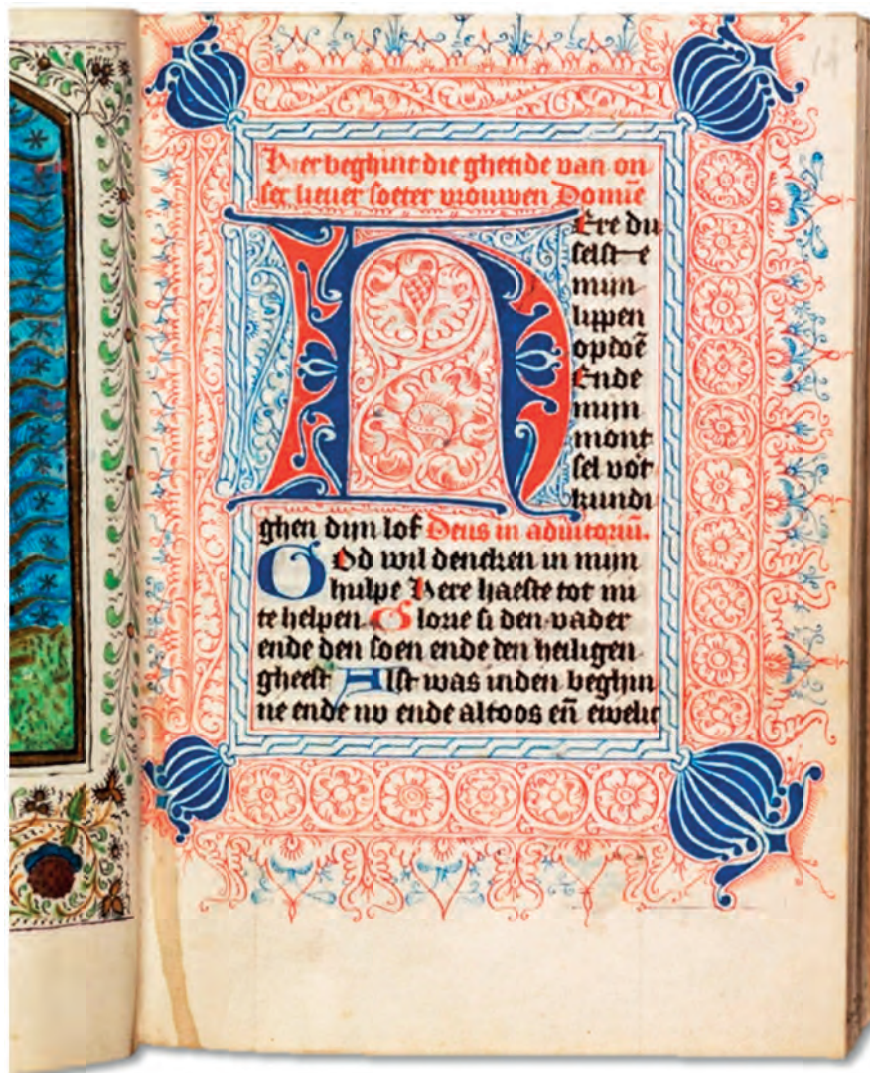 14
Hier beghint die ghetide van on
ser lieuer soeter vrouwen Domīe
HEre du
selst e
mijn
lippen
opdoē
Ende
mijn
mont
sel vor
kundi
ghen dijn lof Deus in adiutoriū.
GOd wil dencken in mijn
hulpe Here haeste tot mi
te helpen. Glorie si den vader
ende den soen ende den heiligen
gheest Alst was inden beghin
ne ende nv ende altoos eñ ewelic